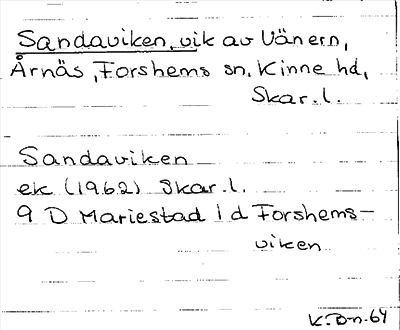 Sandaviken, vik av Vänern,
Årnäs, Forshems sn, Kinne hd,
Skar. l.
Sandaviken
ek (1962) Skar. l.
9 D Mariestad 1 d Forshems-
viken
K. Dn. 64